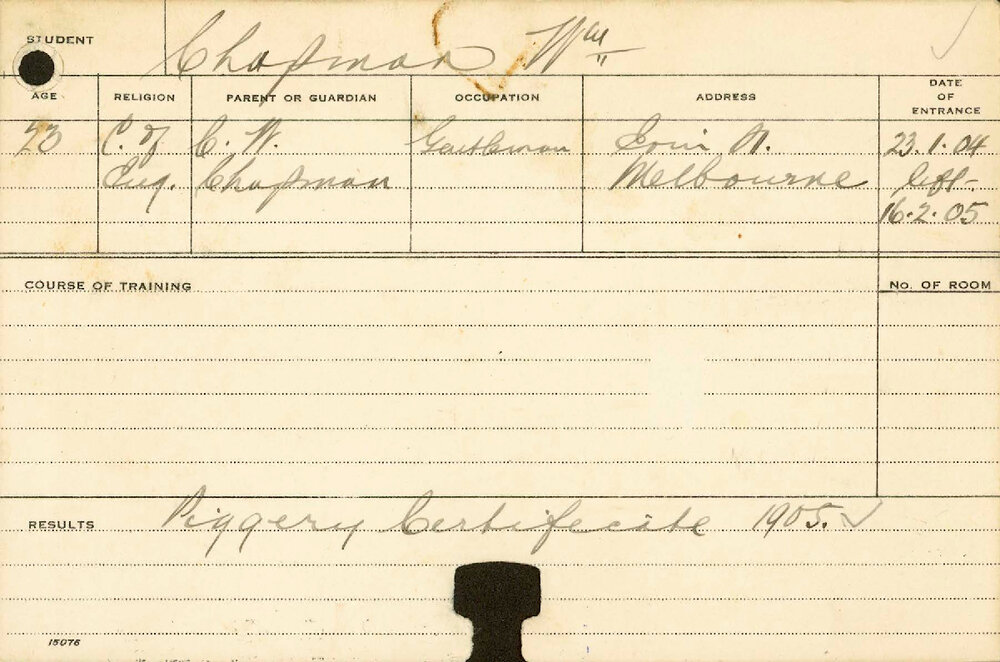 STUDENT Chapman Wm
AGE RELIGION PARENT OR GUARDIAN OCCUPATION ADDRESS DATE OF ENTRANCE
23 C. of C. W. Gentleman St. 23.1.04
Eng. Chapman Melbourne left
16.2.05
COURSE OF TRAINING No. OF ROOM
RESULTS Piggery Certificate 1905. ✓
15076